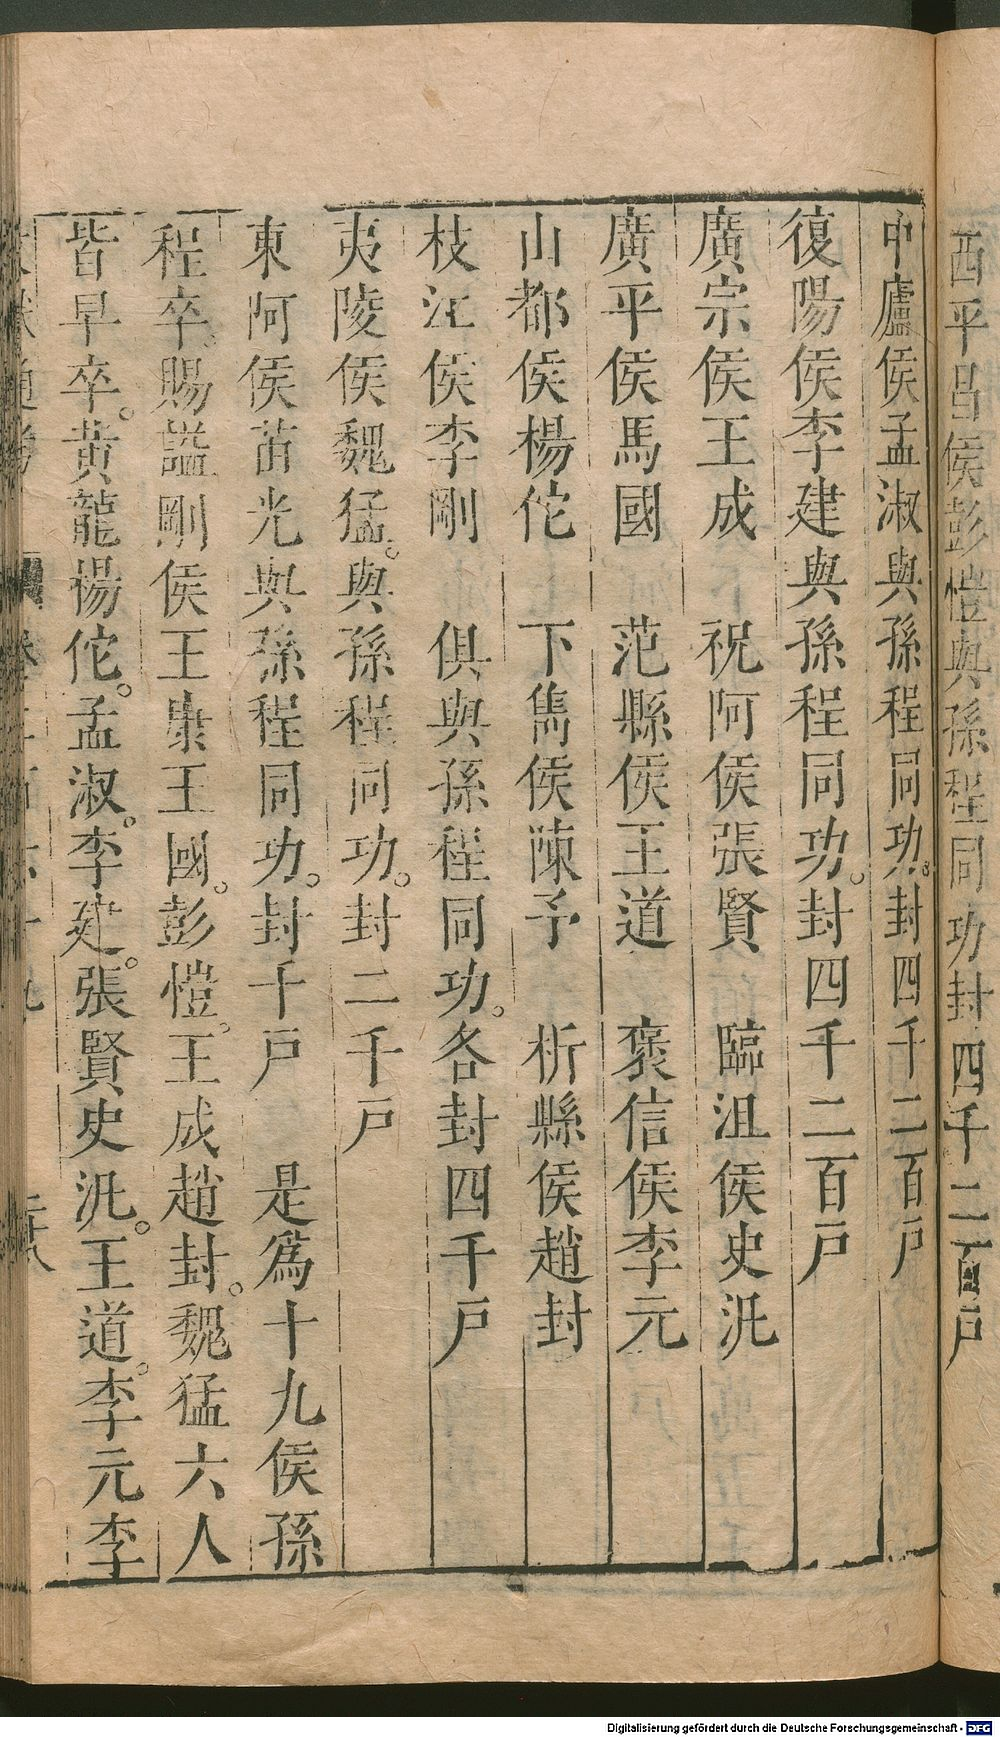 西平昌侯彭愷與孫程同功封四千二百戶
中廬侯孟淑與孫程同功。封四千二百戶
復陽侯李建與孫程同功。封四千二百戶
廣宗侯王成　祝阿侯張賢　臨沮侯史汎
廣平侯馬國　范縣侯王道　褒信侯李元
山都侯楊佗　下雋侯陳予　析縣侯趙封
枝江侯李剛　俱與孫程同功。各封四千戶
夷陵侯魏猛。與孫程同功。封二千戶
東阿侯苗光與孫程同功。封千戶　是爲十九侯孫
程卒。賜謚剛侯王康王國。彭愷。王成趙封。魏猛六人
皆早卒。黃龍楊佗。孟淑。李建。張賢史汎。王道。李元李
Digitalisierung gefördert durch die Deutsche Forschungsgemeinschaft - DFG